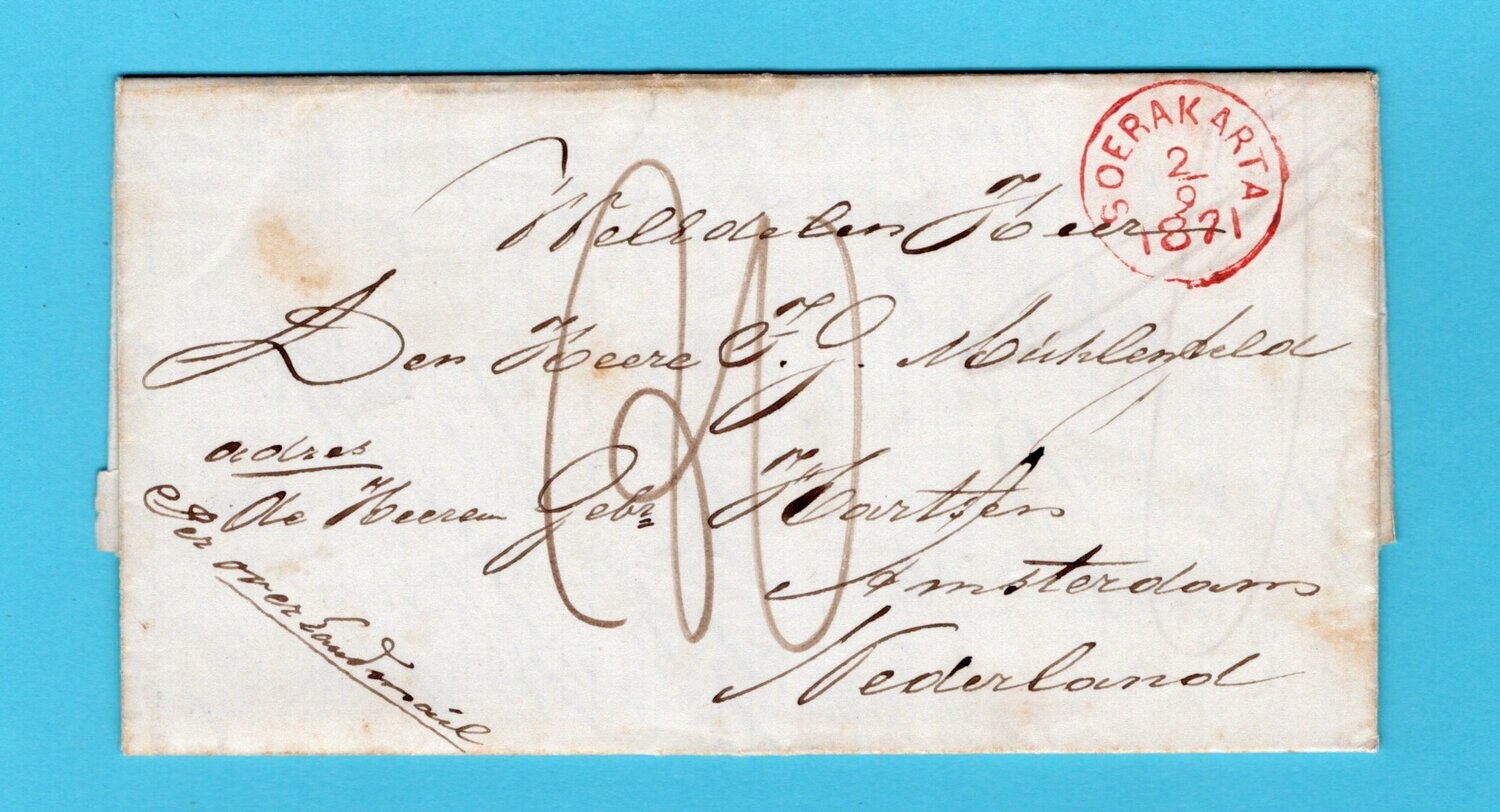 SOERAKARTA
2/9
1871
WelEdelen Heer
Den Heere J. G. Mühlenfeld
adres
de Heeren Gebr Hartsen
Per overlandmail
Amsterdam
Nederland